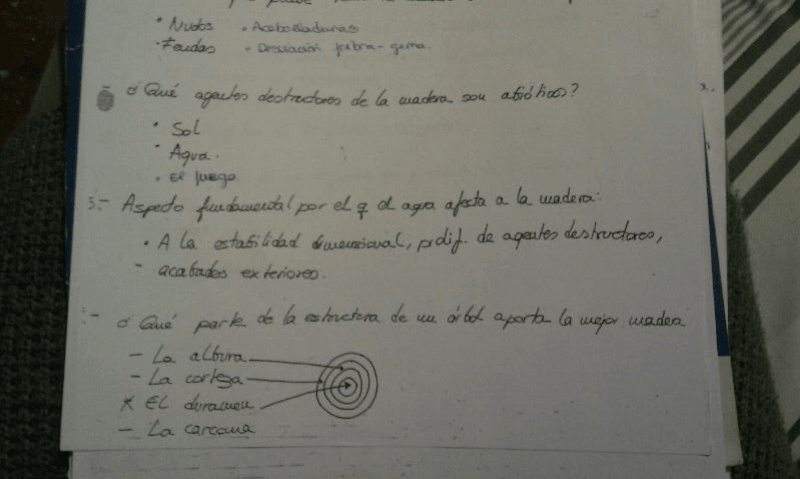 · Nudos · Acebolladuras
· Fendas · Desviación fibra - gema.
¿Qué agentes destructores de la madera son abióticos?
· Sol
· Agua.
· El fuego
5.- Aspecto fundamental por el q el agua afecta a la madera:
· A la estabilidad dimensional, prolif. de agentes destructores,
- acabados exteriores.
- ¿Qué parte de la estructura de un árbol aporta la mejor madera
- La albura
- La corteza
* El duramen
- La carcoma